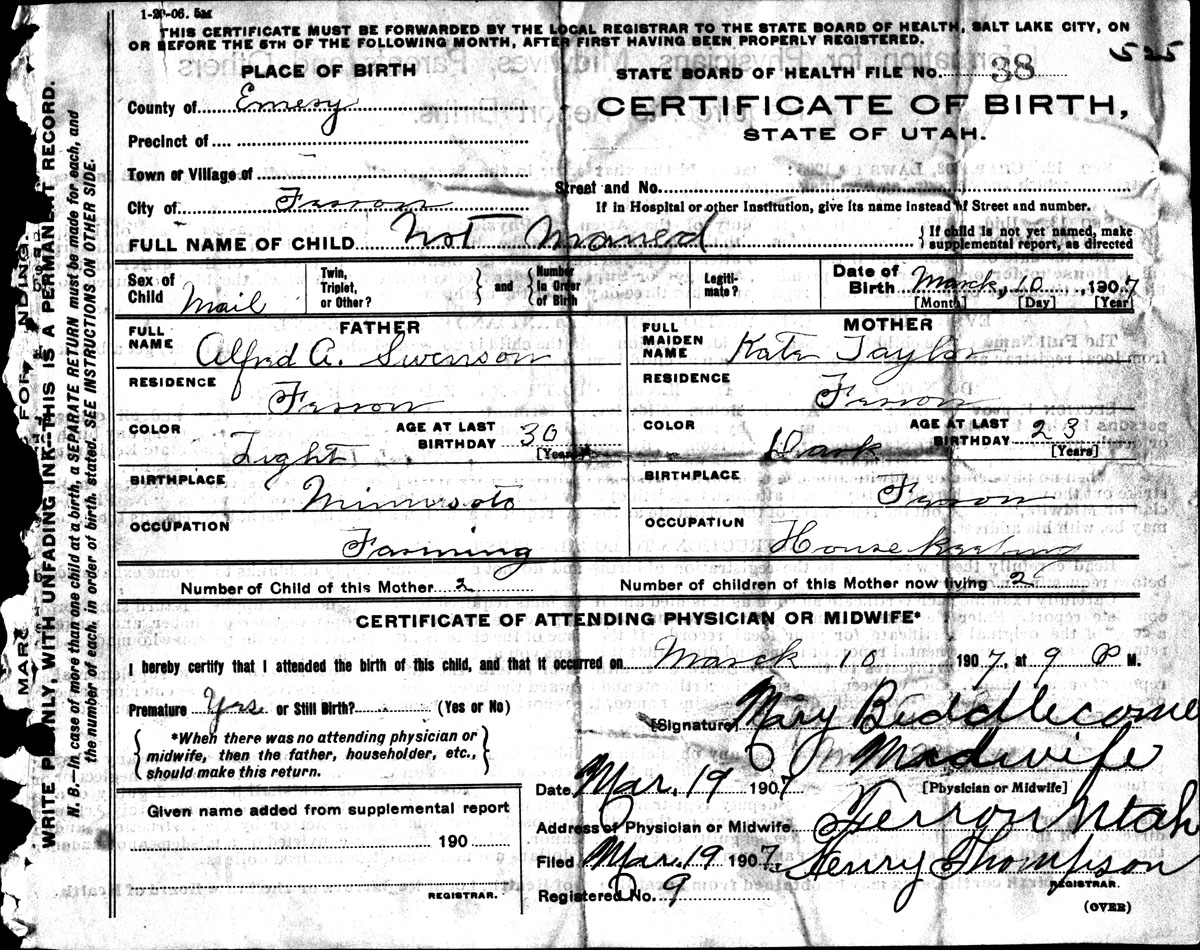 1-20-06. 5M
THIS CERTIFICATE MUST BE FORWARDED BY THE LOCAL REGISTRAR TO THE STATE BOARD OF HEALTH, SALT LAKE CITY, ON
OR BEFORE THE 5TH OF THE FOLLOWING MONTH, AFTER FIRST HAVING BEEN PROPERLY REGISTERED.
525
PLACE OF BIRTH
STATE BOARD OF HEALTH FILE No. 38
County of Emery
CERTIFICATE OF BIRTH,
STATE OF UTAH.
Precinct of
Town or Village of
Street and No.
City of Ferron
If in Hospital or other Institution, give its name instead of Street and number.
FULL NAME OF CHILD Not Maned
If child is not yet named, make
supplemental report, as directed
Sex of Child Mail
Twin, Triplet, or Other?
and
Number in Order of Birth
Legiti-mate?
Date of Birth March, 10, 1907
[Month] [Day] [Year]
FATHER
FULL NAME Alfred A. Swenson
RESIDENCE Ferron
COLOR Light
AGE AT LAST BIRTHDAY 30
[Years]
BIRTHPLACE Minnesota
OCCUPATION Farming
MOTHER
FULL MAIDEN NAME Kate Taylor
RESIDENCE Ferron
COLOR Dark
AGE AT LAST BIRTHDAY 23
[Years]
BIRTHPLACE Ferron
OCCUPATION House Keeping
Number of Child of this Mother 2
Number of children of this Mother now living 2
CERTIFICATE OF ATTENDING PHYSICIAN OR MIDWIFE*
I hereby certify that I attended the birth of this child, and that it occurred on March 10 1907, at 9 P M.
Premature Yes or Still Birth? (Yes or No)
[Signature] Mary Biddlecome
Midwife
[Physician or Midwife]
*When there was no attending physician or
midwife, then the father, householder, etc.,
should make this return.
Date Mar. 19 1907
Given name added from supplemental report
190
REGISTRAR.
Address of Physician or Midwife Ferron Utah
Filed Mar. 19 1907 Henry Thompson
REGISTRAR.
Registered No. 9
(OVER)
WRITE PLAINLY, WITH UNFADING INK—THIS IS A PERMANENT RECORD.
N. B.—In case of more than one child at a birth, a SEPARATE RETURN must be made for each, and
the number of each, in order of birth, stated. SEE INSTRUCTIONS ON OTHER SIDE.